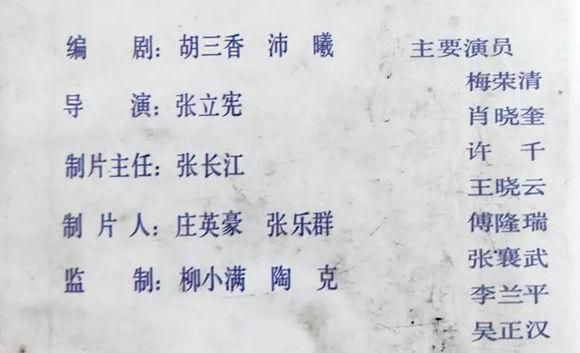 编 剧：胡三香 沛 曦
导 演：张立宪
制片主任：张长江
制 片 人：庄英豪 张乐群
监 制：柳小满 陶 克
主要演员
梅荣清
肖晓奎
许 千
王晓云
傅隆瑞
张襄武
李兰平
吴正汉